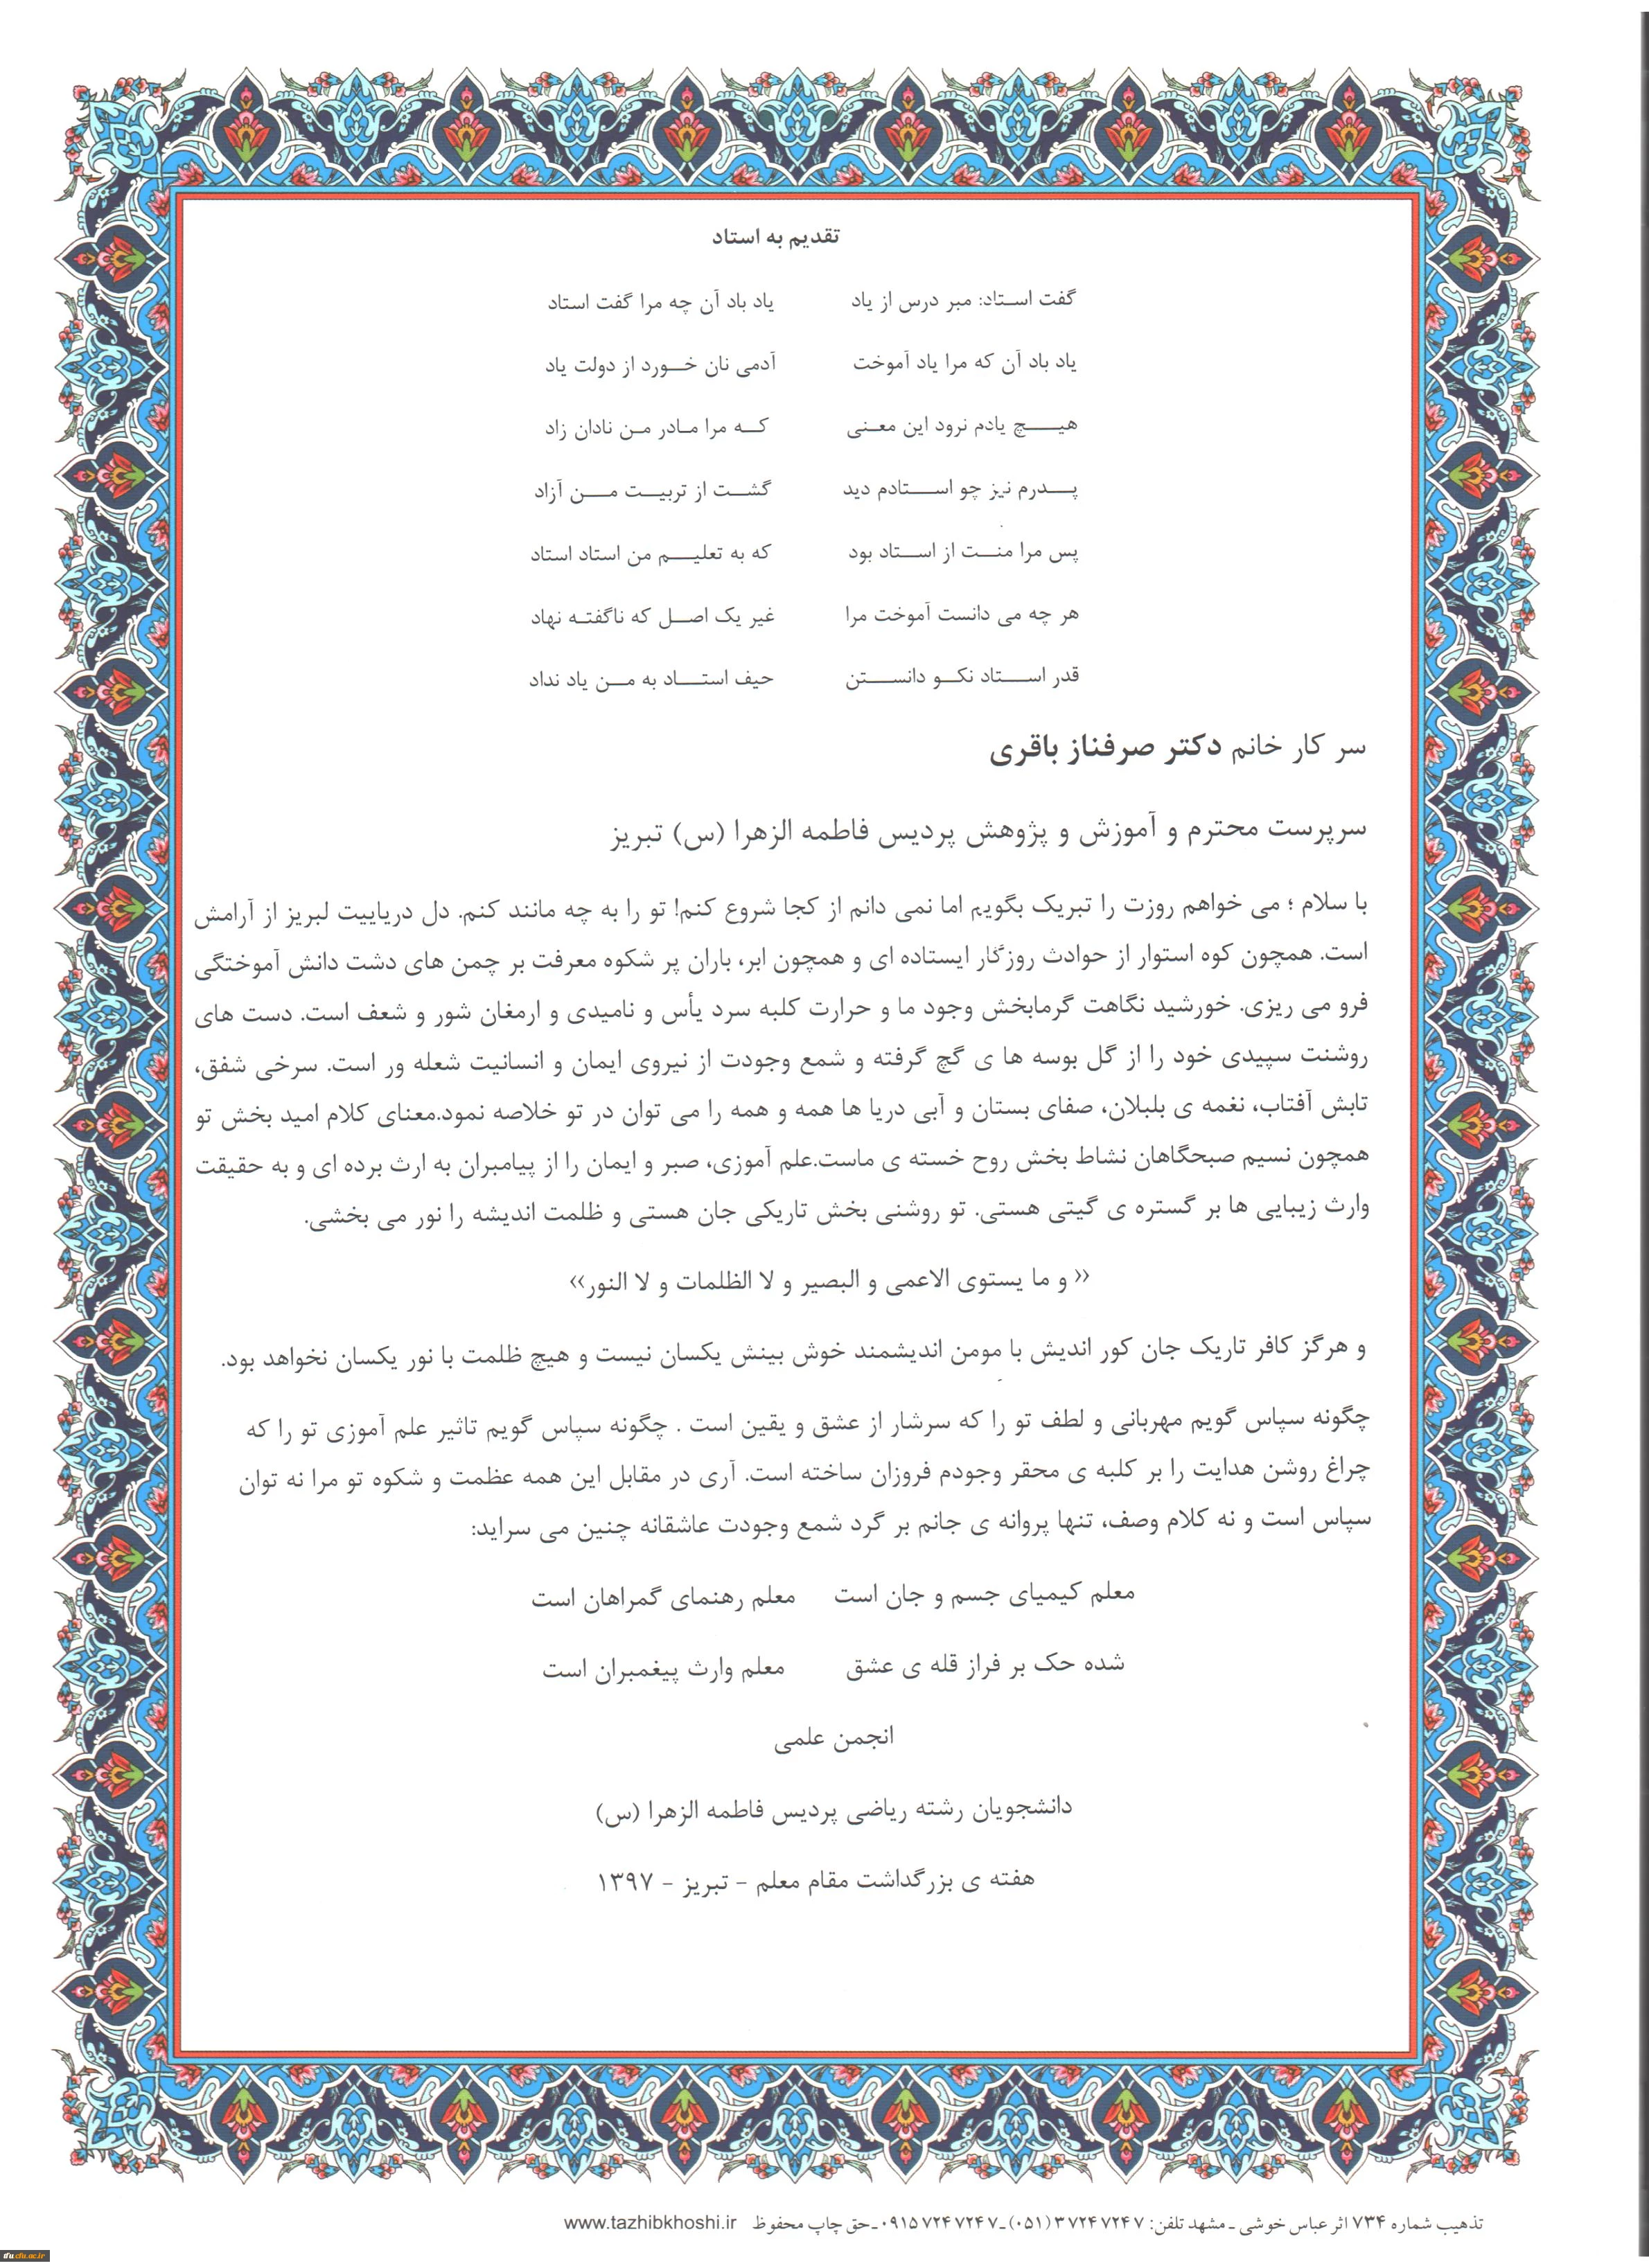 تقدیم به استاد
گفت استاد: مبر درس از یاد یاد باد آن چه مرا گفت استاد
یاد باد آن که مرا یاد آموخت آدمی نان خورد از دولت یاد
هیچ یادم نرود این معنی که مرا مادر من نادان زاد
پدرم نیز چو استادم دید گشت از تربیت من آزاد
پس مرا منت از استاد بود که به تعلیم من استاد استاد
هر چه می دانست آموخت مرا غیر یک اصل که ناگفته نهاد
قدر استاد نکو دانستن حیف استاد به من یاد نداد
سر کار خانم دکتر صرفناز باقری
سرپرست محترم و آموزش و پژوهش پردیس فاطمه الزهرا (س) تبریز
با سلام ؛ می خواهم روزت را تبریک بگویم اما نمی دانم از کجا شروع کنم! تو را به چه مانند کنم. دل دریاییت لبریز از آرامش
است. همچون کوه استوار از حوادث روزگار ایستاده ای و همچون ابر، باران پر شکوه معرفت بر چمن های دشت دانش آموختگی
فرو می ریزی. خورشید نگاهت گرمابخش وجود ما و حرارت کلبه سرد یأس و نامیدی و ارمغان شور و شعف است. دست های
روشنت سپیدی خود را از گل بوسه ها ی گچ گرفته و شمع وجودت از نیروی ایمان و انسانیت شعله ور است. سرخی شفق،
تابش آفتاب، نغمه ی بلبلان، صفای بستان و آبی دریا ها همه و همه را می توان در تو خلاصه نمود.معنای کلام امید بخش تو
همچون نسیم صبحگاهان نشاط بخش روح خسته ی ماست.علم آموزی، صبر و ایمان را از پیامبران به ارث برده ای و به حقیقت
وارث زیبایی ها بر گستره ی گیتی هستی. تو روشنی بخش تاریکی جان هستی و ظلمت اندیشه را نور می بخشی.
« و ما یستوی الاعمی و البصیر و لا الظلمات و لا النور»
و هرگز کافر تاریک جان کور اندیش با مومن اندیشمند خوش بینش یکسان نیست و هیچ ظلمت با نور یکسان نخواهد بود.
چگونه سپاس گویم مهربانی و لطف تو را که سرشار از عشق و یقین است . چگونه سپاس گویم تاثیر علم آموزی تو را که
چراغ روشن هدایت را بر کلبه ی محقر وجودم فروزان ساخته است. آری در مقابل این همه عظمت و شکوه تو مرا نه توان
سپاس است و نه کلام وصف، تنها پروانه ی جانم بر گرد شمع وجودت عاشقانه چنین می سراید:
معلم کیمیای جسم و جان است معلم رهنمای گمراهان است
شده حک بر فراز قله ی عشق معلم وارث پیغمبران است
انجمن علمی
دانشجویان رشته ریاضی پردیس فاطمه الزهرا (س)
هفته ی بزرگداشت مقام معلم - تبریز - ۱۳۹۷
تذهیب شماره ۷۳۴ اثر عباس خوشی ـ مشهد تلفن: ۳۷۲۴۷۲۴۷ (۰۵۱) ـ ۰۹۱۵۷۲۴۷۲۴۷ـ حق چاپ محفوظ www.tazhibkhoshi.ir
tfu.cfu.ac.ir